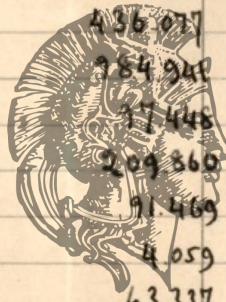 436.077
984.941
97.448
209.860
91.469
4.059
63.737